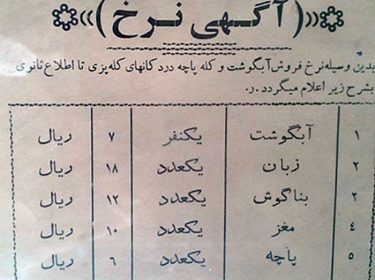 (آگهی نرخ)
بدین وسیله نرخ فروش آبگوشت و کله پاچه در دکانهای کله‌پزی تا اطلاع ثانوی
بشرح زیر اعلام میگردد.
۱ آبگوشت یکنفر ۷ ریال
۲ زبان یکعدد ۱۸ ریال
۳ بناگوش یکعدد ۱۲ ریال
۴ مغز یکعدد ۱۰ ریال
۵ پاچه یکعدد ۶ ریال